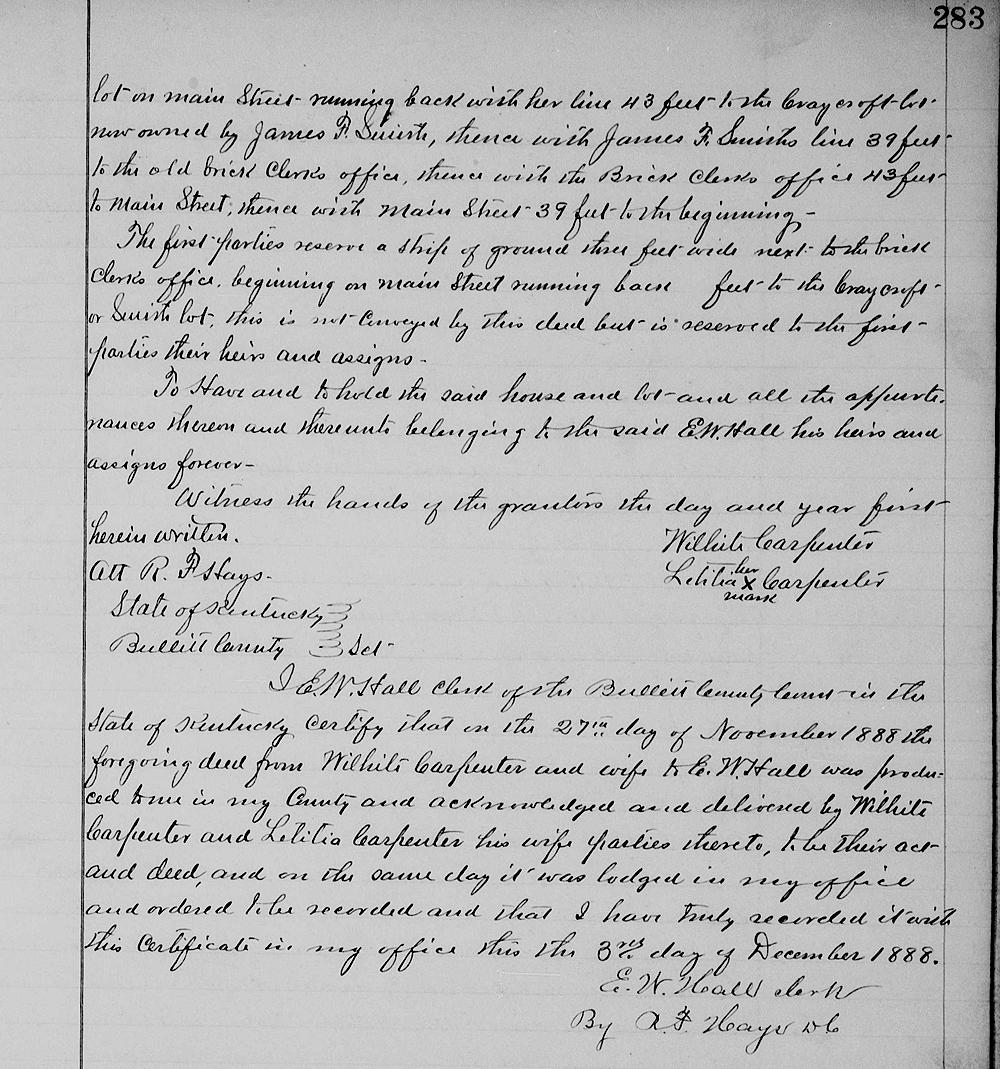 283
lot on main Street running back with her line 43 feet to the Craycroft lot
now owned by James F. Smith, thence with James F. Smiths line 39 feet
to the old brick Clerks office, thence with the Brick Clerks office 43 feet
to Main Street, thence with Main Street 39 feet to the beginning -
The first parties reserve a strip of ground three feet wide next to the brick
Clerks office, beginning on main Street running back feet to the Craycroft
or Smith lot, this is not Conveyed by this deed but is reserved to the first
parties their heirs and assigns -
To Have and to hold the said house and lot and all the appurte-
nances thereon and thereunto belonging to the said E.W. Hall his heirs and
assigns forever -
Witness the hands of the grantors the day and year first
herein written.
Wilhite Carpenter
Att R. F Hays.
Letitia her X mark Carpenter
State of Kentucky
Bullitt County Sct
I E.W. Hall Clerk of the Bullitt County Court in the
State of Kentucky Certify that on the 27th day of November 1888 the
foregoing deed from Wilhite Carpenter and wife to E. W. Hall was produ=
ced to me in my County and acknowledged and delivered by Wilhite
Carpenter and Letitia Carpenter his wife parties thereto, to be their act
and deed, and on the same day it was lodged in my office
and ordered to be recorded and that I have truly recorded it with
this Certificate in my office this the 3rd day of December 1888.
E. W. Hall clerk
By R. F. Hays D C